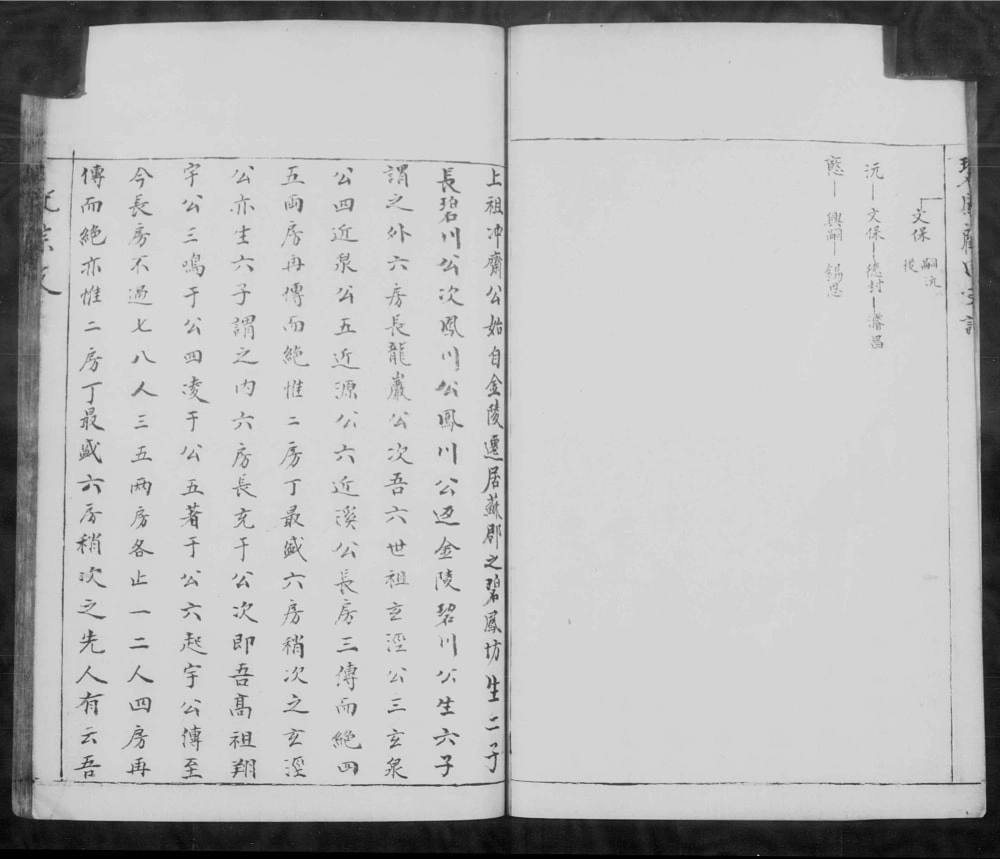 文保 嗣沅後
沅—文保—德封—濬昌
愍—興嗣—錫恩
上祖冲齋公始自金陵遷居蘇郡之碧鳳坊生二子
長碧川公次鳳川公鳳川公迈金陵碧川公生六子
謂之外六房長龍巖公次吾六世祖玄涇公三玄泉
公四近泉公五近源公六近溪公長房三傳而絕四
五兩房再傳而絕惟二房丁最盛六房稍次之玄涇
公亦生六子謂之内六房長充于公次即吾高祖翔
宇公三鳴于公四凌于公五著于公六起宇公傳至
今長房不過七八人三五兩房各止一二人四房再
傳而絕亦惟二房丁最盛六房稍次之先人有云吾